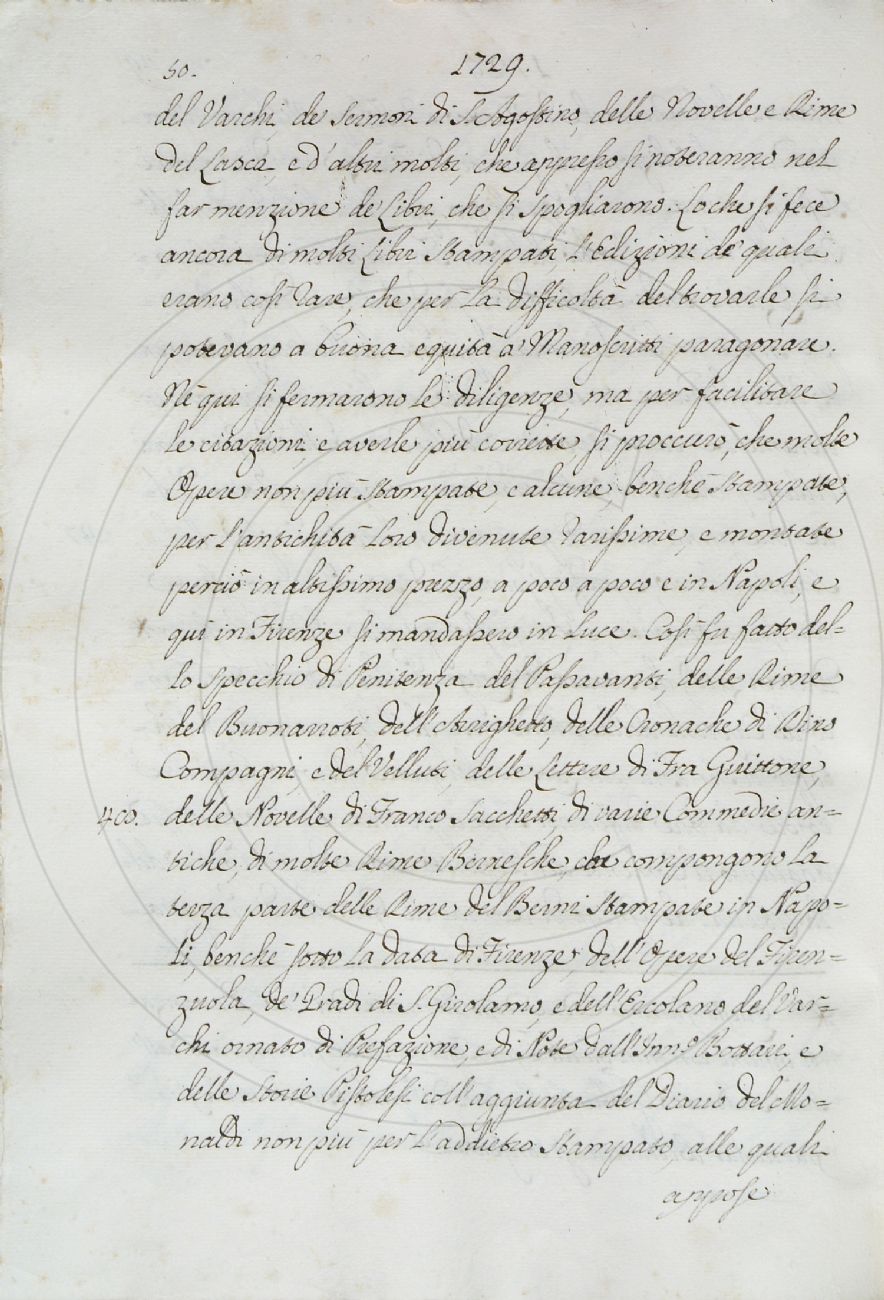 50.
1729.
del Varchi, de Sermoni di S. Agostino, delle Novelle e Rime
del Lasca, e d'altri molti, che appresso si noteranno nel
far menzione de' Libri, che si spogliarono. Lo che si fece
ancora di molti Libri Stampati, l'Edizioni de' quali
erano così rare, che per la difficoltà del trovarle si
potevano a buona equità a' Manoscritti paragonare.
Nè qui si fermarono le diligenze, ma per facilitare
le citazioni, e averle più corrette si proccurò, che molte
Opere non più stampate, e alcune, benchè stampate,
per l'antichità loro divenute rarissime, e montate
perciò in altissimo prezzo, a poco a poco e in Napoli, e
quì in Firenze si mandassero in Luce. Così fu fatto del=
lo Specchio di Penitenza del Passavanti, delle Rime
del Buonarroti, dell'Arrighetto, delle Cronache di Dino
Compagni, e del Velluti, delle Lettere di Fra Guittone,
400. delle Novelle di Franco Sacchetti, di varie Commedie an=
tiche, di molte Rime Bernesche, che compongono la
terza parte delle Rime del Berni stampate in Napo=
li, benchè sotto la data di Firenze, dell'Opere del Firen=
zuola, de' Gradi di S. Girolamo, e dell'Ercolano del Var=
chi ornato di Prefazione, e di Note dall'Inn.o Bottari, e
delle Storie Pistolesi coll'aggiunta del Diario del Mo=
naldi non più per l'addietro Stampato, alle quali
appose